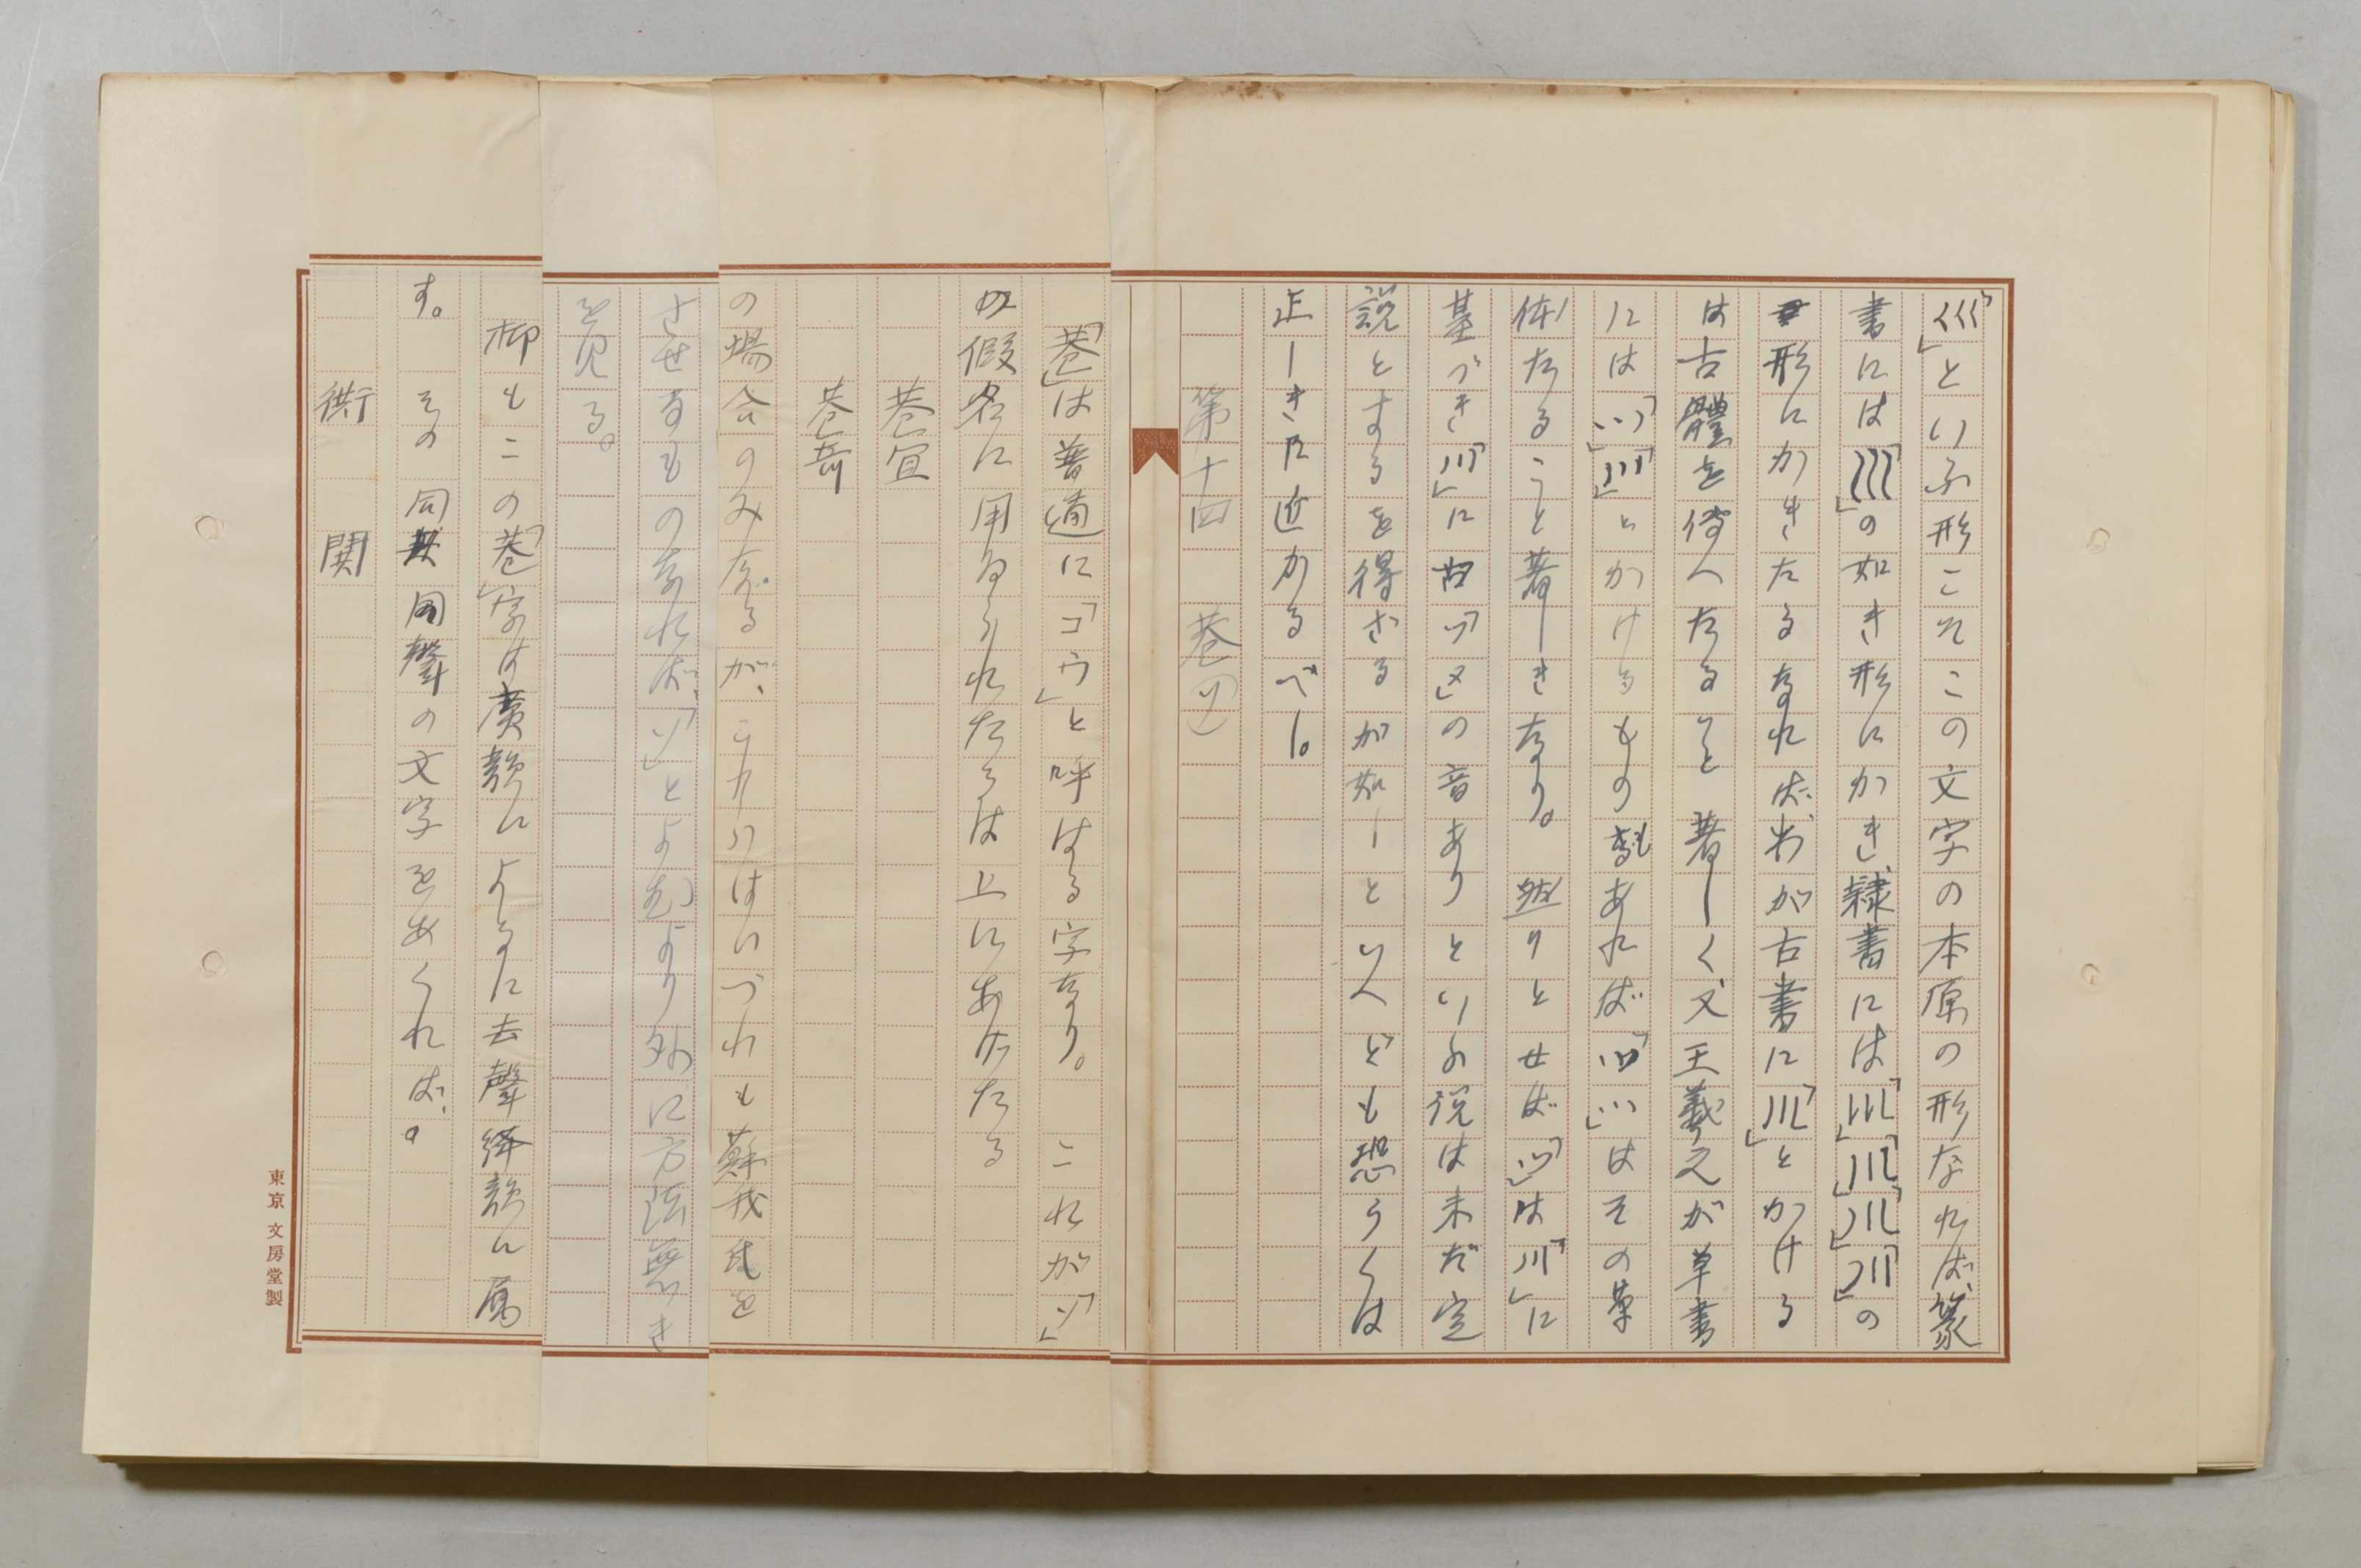 「巛」といふ形こそこの文字の本原の形なれば、篆
書には「巛」の如き形にかき、隷書には「川」「川」「川」「川」の
形にかきたるなれば、わが古書に「川」とかける
は古體を傳へたること著しく、又王羲之が草書
には「ツ」「川」とかけるものもあれば「ツ」「ツ」はその草
体たること著しきなり。然りとせば「ツ」は「川」に
基づき「川」に古「ツ」の音ありといふ説は未だ定
説とするを得ざるが如しといへども恐らくは
正しきに近かるべし。
第十四 巷(ソ)
「巷」は普通に「コウ」と呼ばる字なり。これが「ソ」
の假名に用ゐられたるは上にあげたる
巷宜
巷奇
の場合のみなるが、これらはいづれも蘇我氏を
させるものなれば、「ソ」とよむより外に方法無き
を見る。
抑もこの「巷」字は廣韻によるに去聲絳韻に属
す。その同聲の文字をあぐれば、
衖 鬨
東京 文房堂製